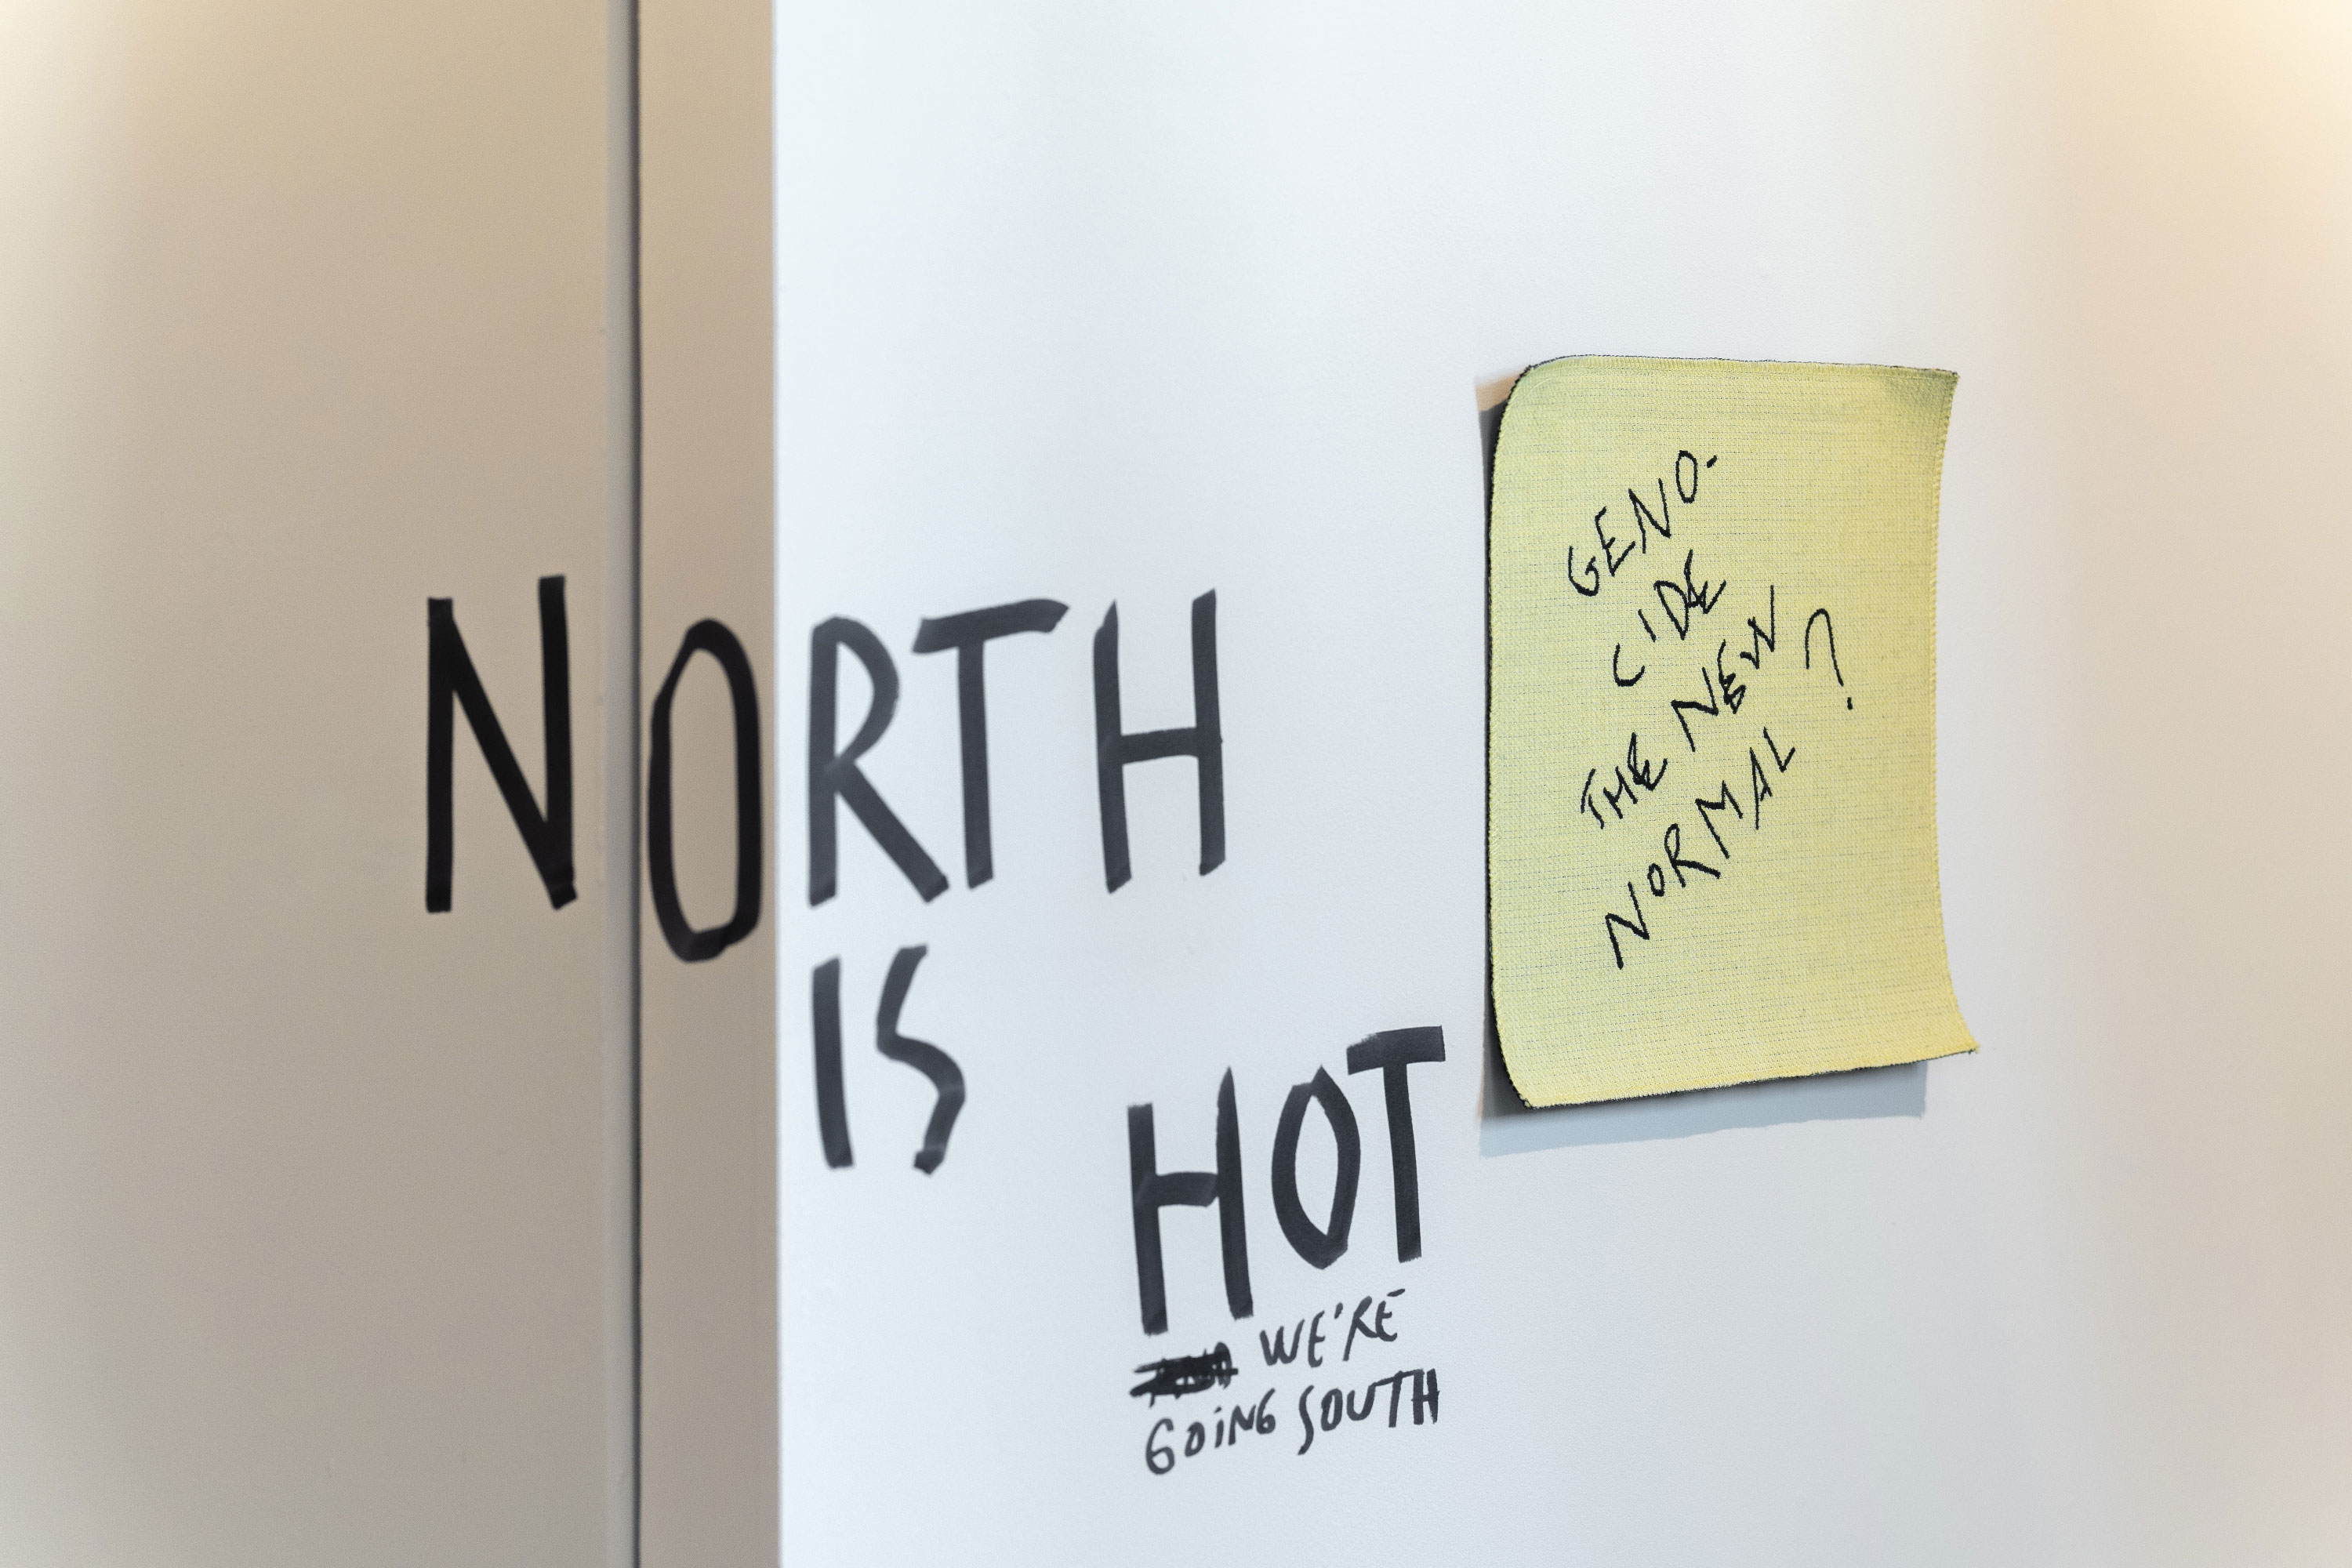 NORTH
IS
HOT
WE'RE
GOING SOUTH
GENO-
CIDE
THE NEW
NORMAL ?